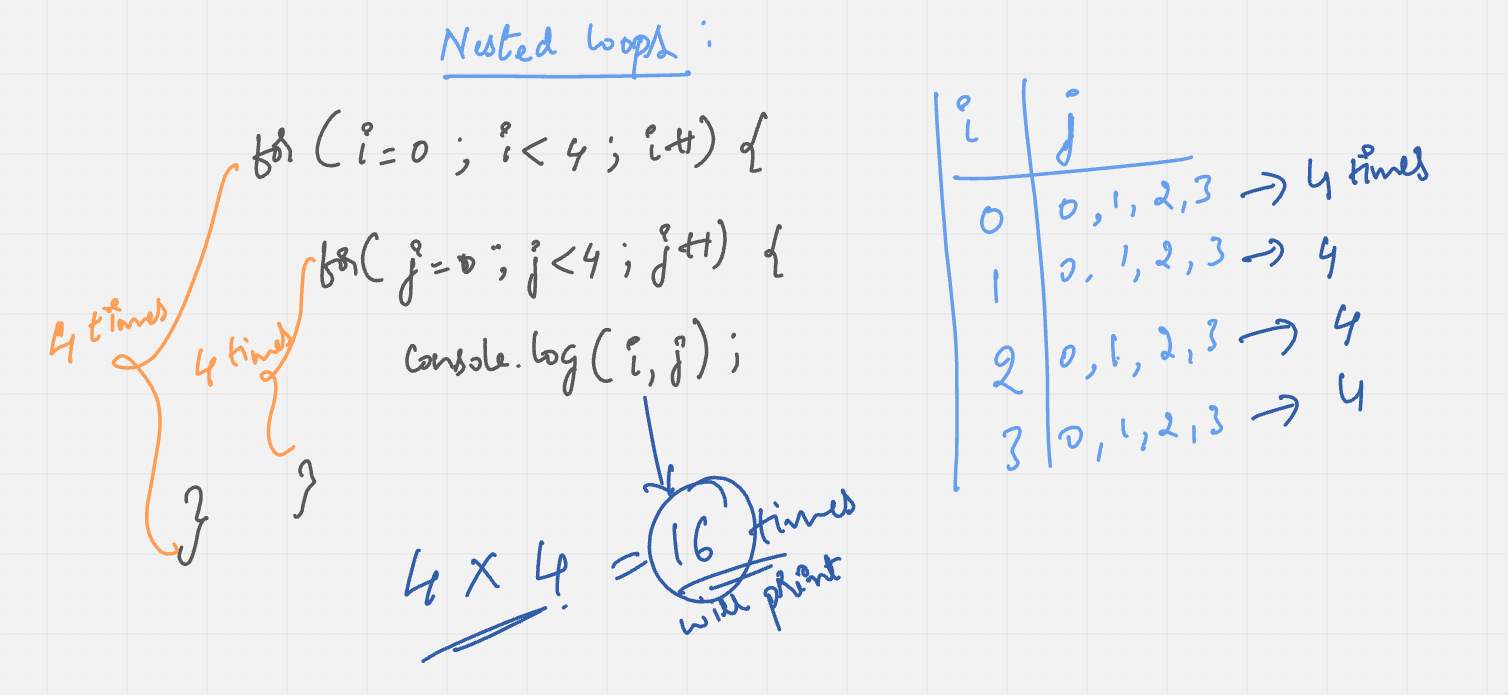 Nested loops :
for (i=0 ; i< 4 ; i++) {
for( j=0 ; j<4 ; j++) {
console.log(i, j) ;
}
}
4 times
4 times
4 x 4 = 16 times
will print
i j
0 0, 1, 2, 3 → 4 times
1 0, 1, 2, 3 → 4
2 0, 1, 2, 3 → 4
3 0, 1, 2, 3 → 4